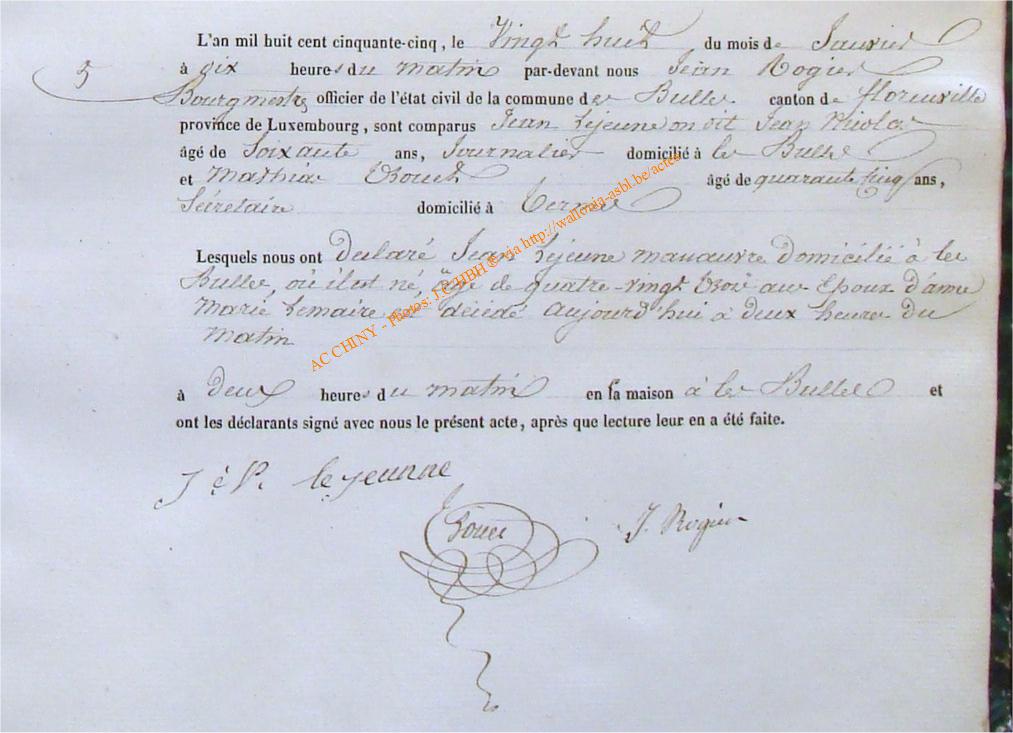 L'an mil huit cent cinquante-cinq, le Vingt huit du mois de Janvier
5
à dix heures du matin par-devant nous Jean Rogier
Bourgmestre officier de l'état civil de la commune de les Bulles canton de florenville
province de Luxembourg, sont comparus Jean Lejeune on dit Jean Nicolas
âgé de Soixante ans, Journalier domicilié à les Bulles
et Mathias âgé de quarante cinq ans,
Sécretaire domicilié à Termes
Lesquels nous ont declaré Jean Lejeune manœuvre domicilié à les
Bulles, où il est né, âgé de quatre-vingt trois ans Epoux d'anne
Marie Lemaire est décédé aujourd'hui à deux heures du
matin
à deux heures du matin en sa maison à les Bulles et
ont les déclarants signé avec nous le présent acte, après que lecture leur en a été faite.
le jeunne
J. Rogier
AC CHINY - Photos: J.C. HBH © via http://wallonia-asbl.be/actes